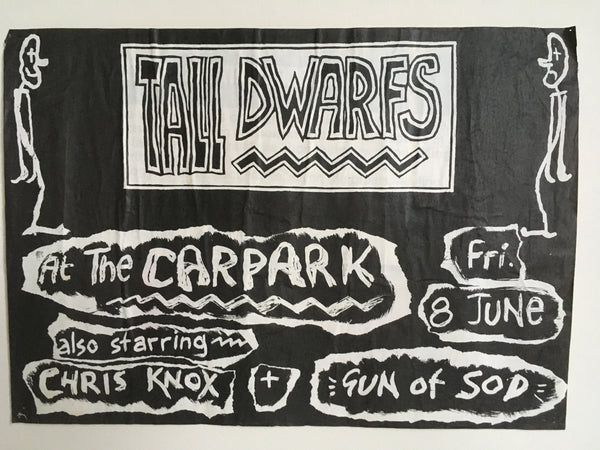 TALL DWARFS
At The CARPARK
Fri.
8 JUNE
also starring
CHRIS KNOX + GUN of SOD